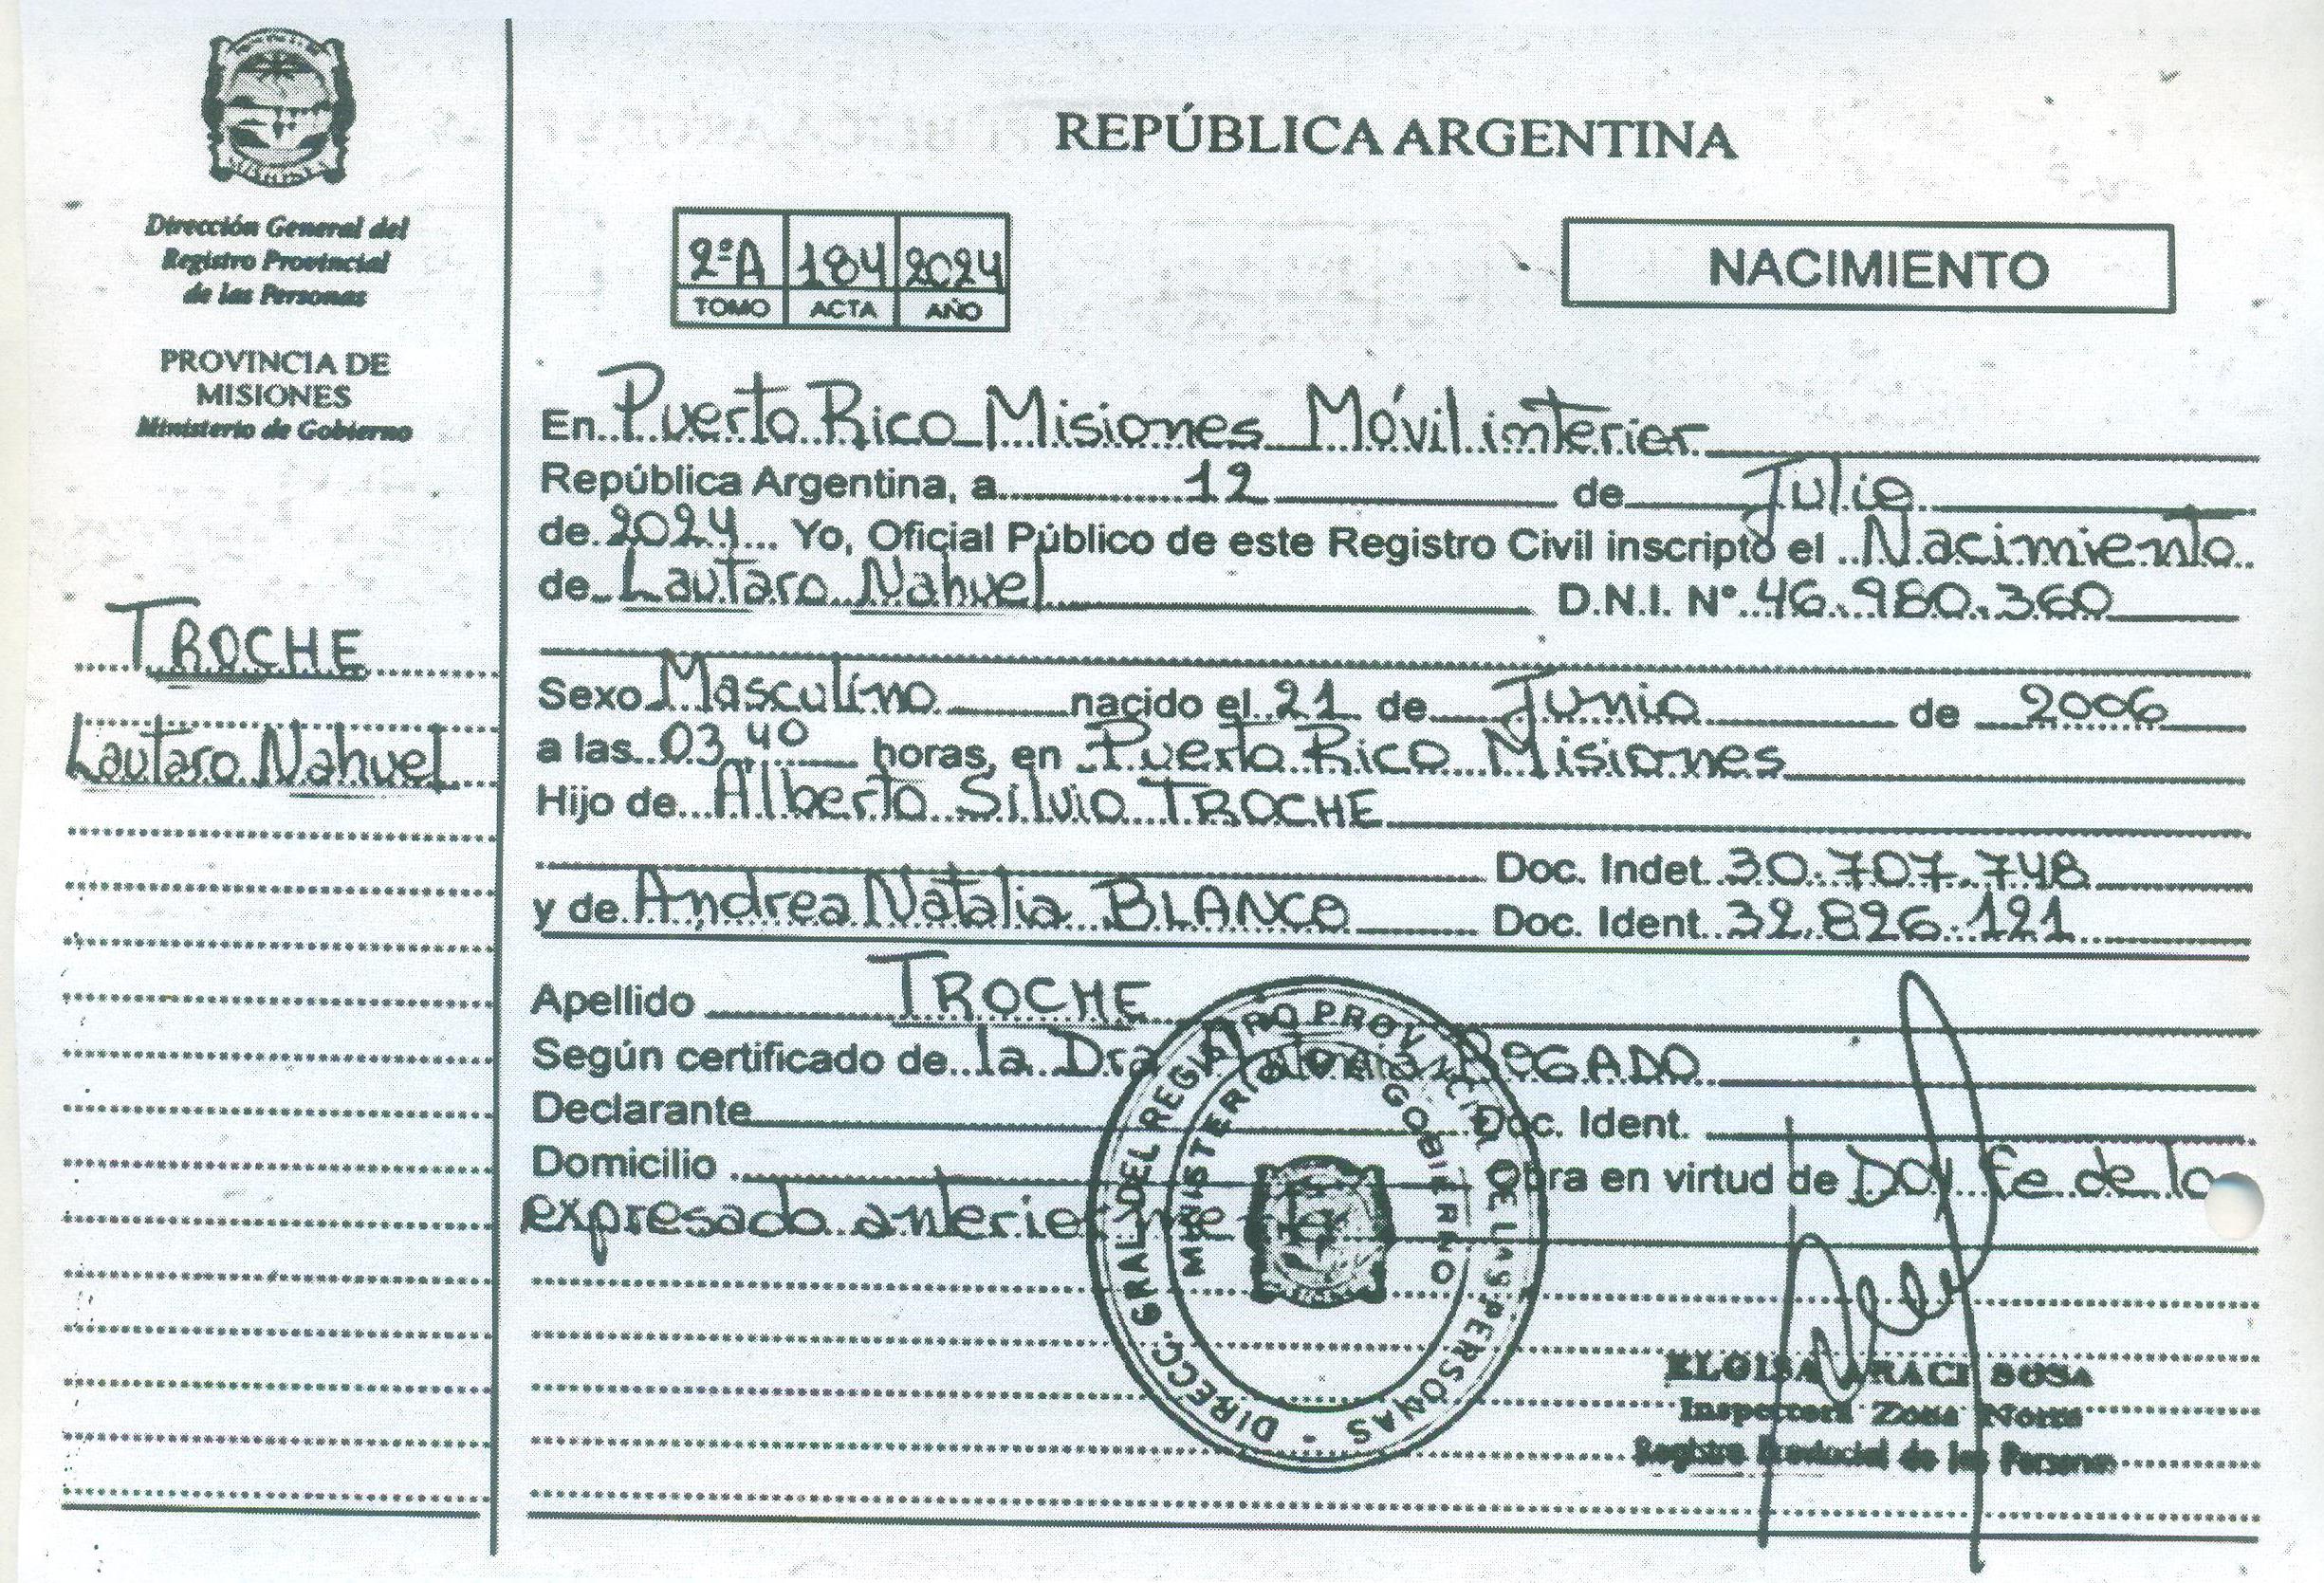 Dirección General del
Registro Provincial
de las Personas
PROVINCIA DE
MISIONES
Ministerio de Gobierno
TROCHE
Lautaro Nahuel
REPÚBLICA ARGENTINA
2ºA 184 2024
TOMO ACTA AÑO
NACIMIENTO
En Puerto Rico Misiones Móvil interior
República Argentina, a 12 de Julio
de 2024 Yo, Oficial Público de este Registro Civil inscripto el Nacimiento
de Lautaro Nahuel D.N.I. Nº 46.980.360
Sexo Masculino nacido el 21 de Junio de 2006
a las 03 40 horas, en Puerto Rico Misiones
Hijo de Alberto Silvio TROCHE
Doc. Indet. 30.707.748
y de Andrea Natalia BLANCO Doc. Ident. 32.826.121
Apellido TROCHE
Según certificado de la Dra
Declarante Doc. Ident.
Domicilio Obra en virtud de Doy fe de lo
expresado anteriormente
DIRECC. GRAL. DEL REGISTRO PROVINCIAL DE LAS PERSONAS -
MINISTERIO DE GOBIERNO
ELOISA ARACI SOSA
Inspectora Zona Norte
Registro Provincial de las Personas